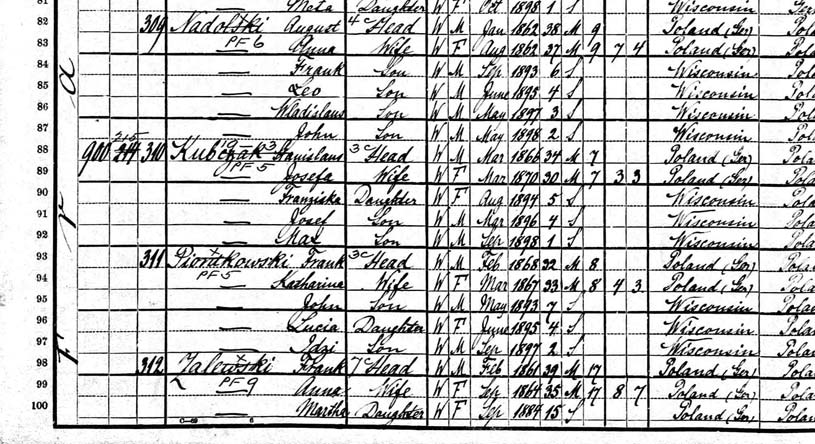 81 — Meta Daughter W F Oct 1898 1 S Wisconsin
82 309 Nadolski August Head W M Jan 1862 38 M 9 Poland (Ger) Pola
83 — PF 6 Anna Wife W F Aug 1862 37 M 9 7 4 Poland (Ger) Pola
84 — Frank Son W M Sep 1893 6 S Wisconsin Pola
85 — Leo Son W M June 1895 4 S Wisconsin Pola
86 — Wladislaus Son W M May 1897 3 S Wisconsin Pola
87 — John Son W M May 1898 2 S Wisconsin Pola
88 900 310 Kubczak Stanislaus Head W M Mar 1866 34 M 7 Poland (Ger) Pola
89 — PF 5 Josefa Wife W F Mar 1870 30 M 7 3 3 Poland (Ger) Pola
90 — Franziska Daughter W F Aug 1894 5 S Wisconsin Pola
91 — Josef Son W M Mar 1896 4 S Wisconsin Pola
92 — Max Son W M Sep 1898 1 S Wisconsin Pola
93 311 Piontkowski Frank Head W M Feb 1868 32 M 8 Poland (Ger) Pola
94 — PF 5 Katharina Wife W F Mar 1867 33 M 8 4 3 Poland (Ger) Pola
95 — John Son W M May 1893 7 S Wisconsin Pola
96 — Lucia Daughter W F June 1895 4 S Wisconsin Pola
97 — Idzi Son W M Sep 1897 2 S Wisconsin Pola
98 312 Zalewski Frank Head W M Feb 1861 39 M 17 Poland (Ger) Pola
99 — PF 9 Anna Wife W F Sep 1864 35 M 17 8 7 Poland (Ger) Pola
100 — Martha Daughter W F Sep 1884 15 S Poland (Ger) Pola